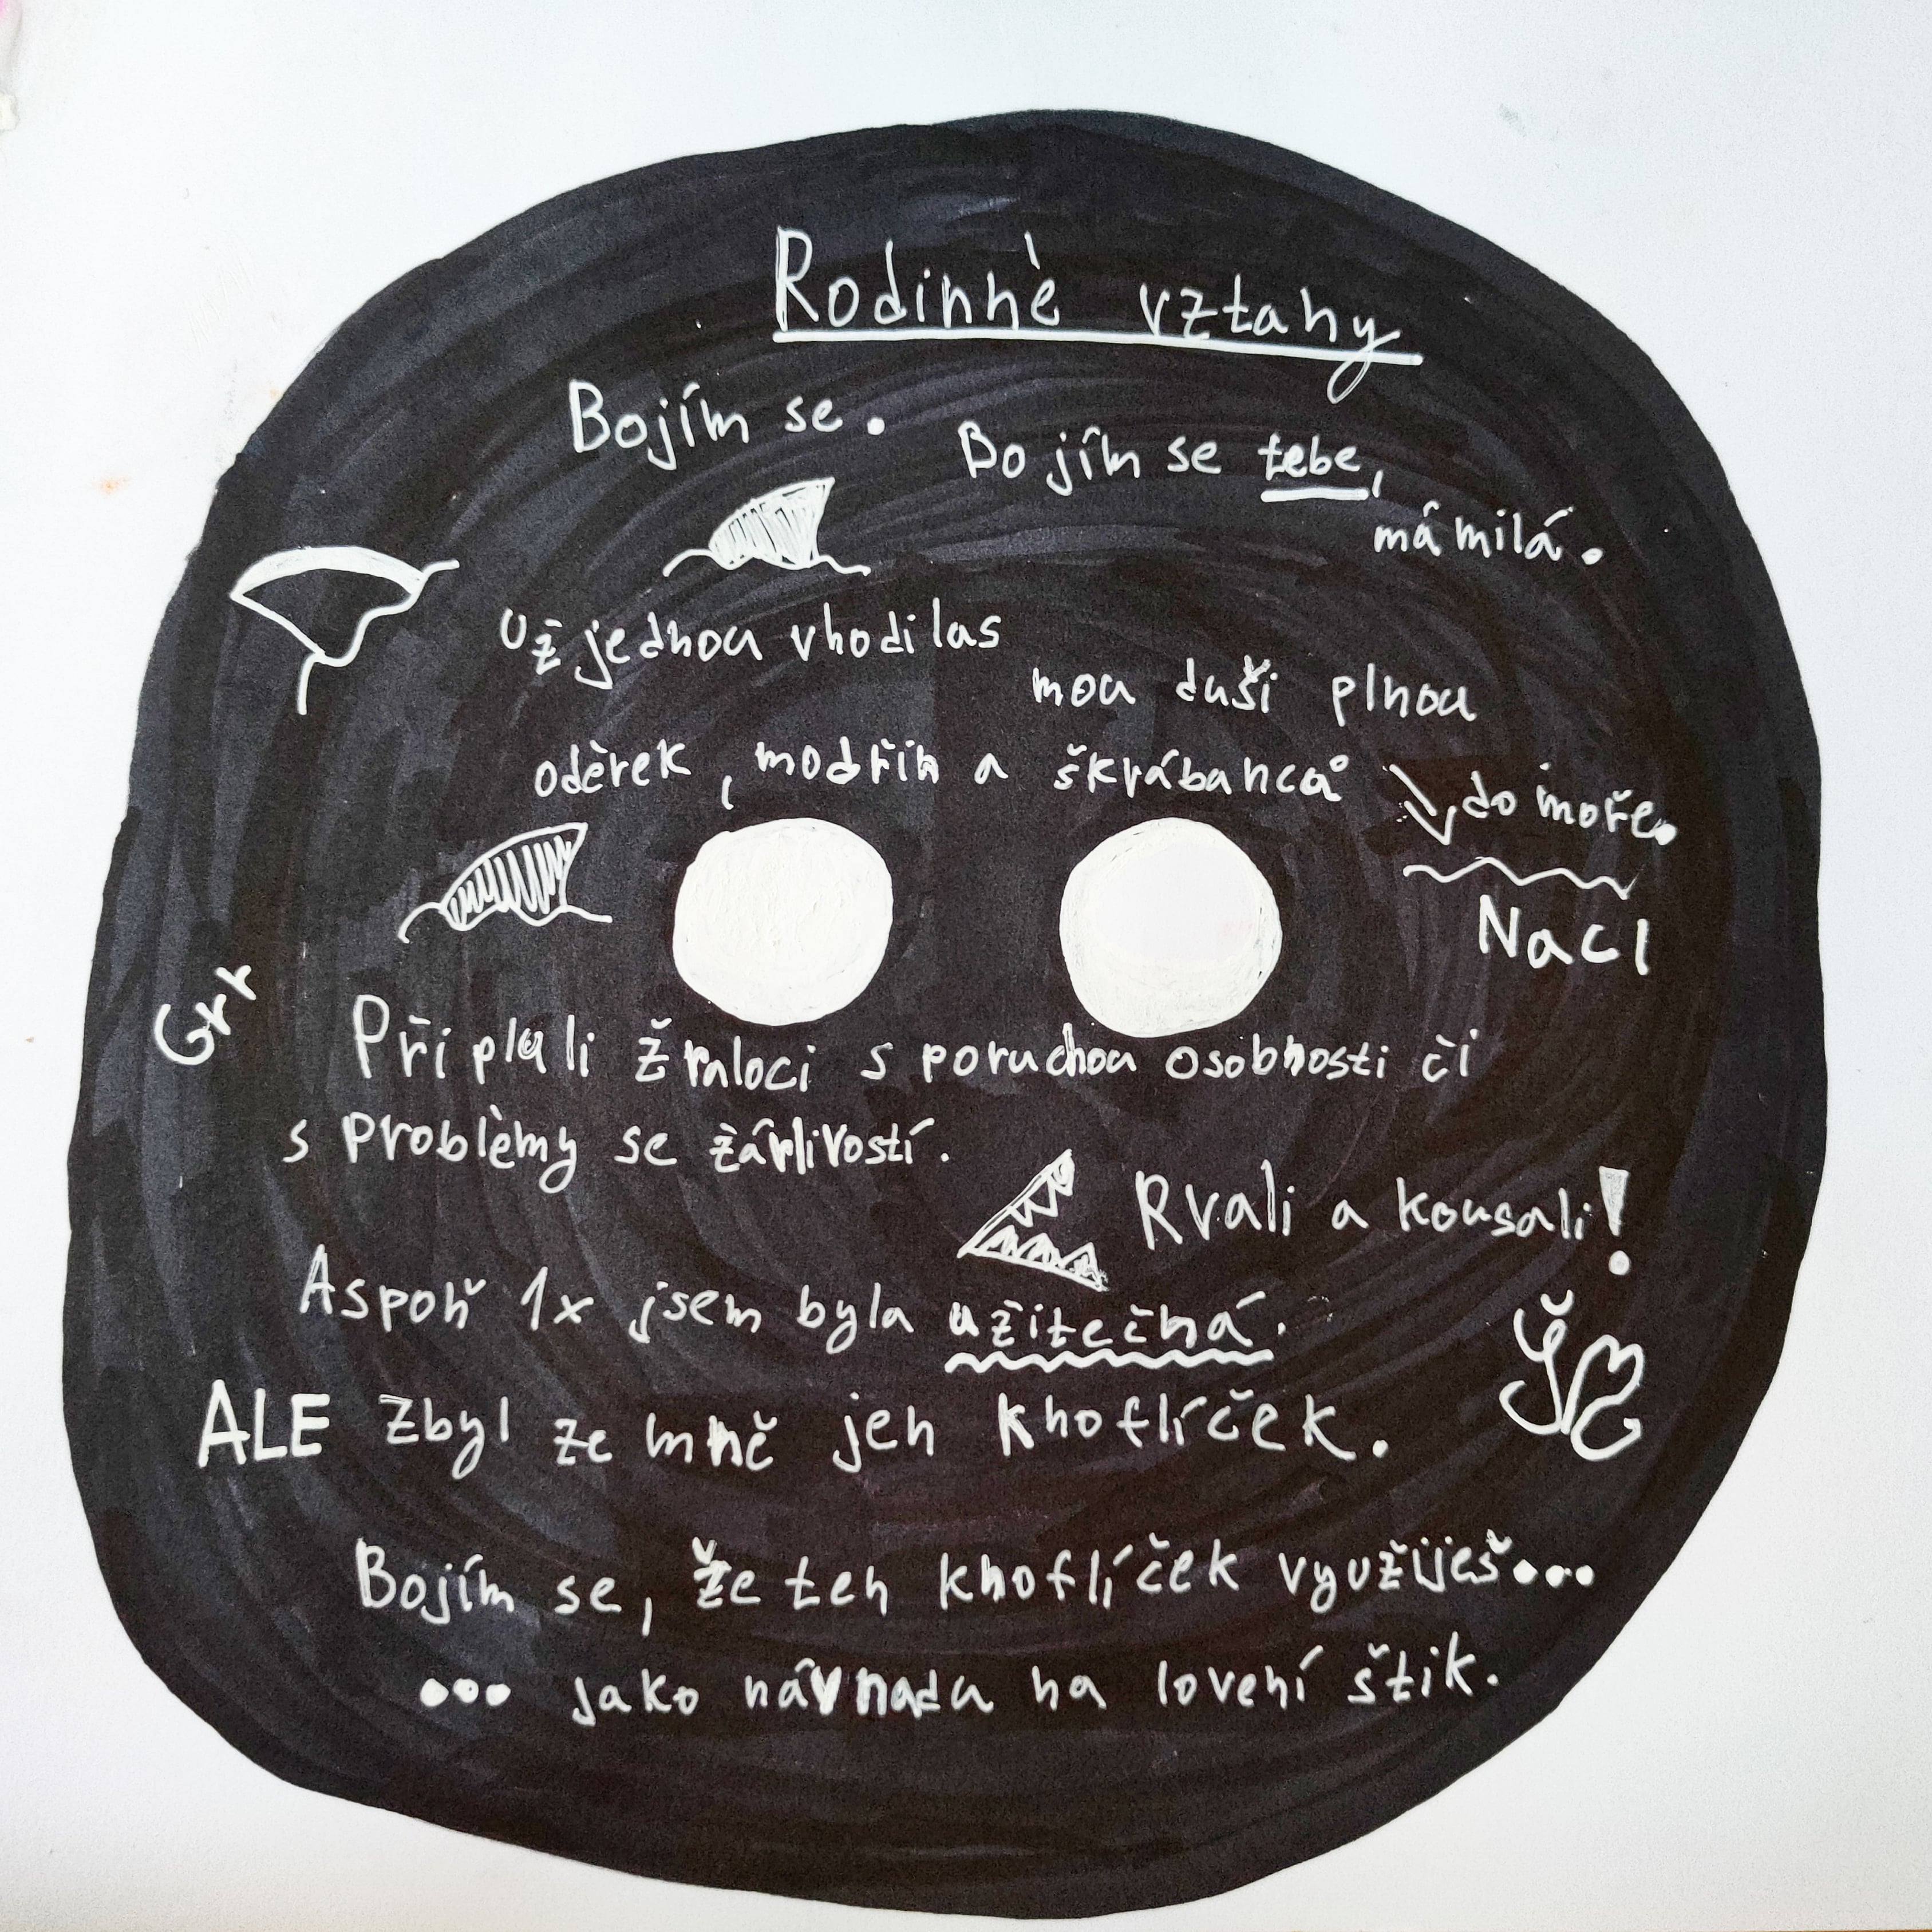 Rodinné vztahy
Bojím se.
Bojím se tebe,
má milá.
Už jednou vhodilas
mou duši plnou
oděrek, modřin a škrábanců
do moře.
NaCl
Grr
Připluli žraloci s poruchou osobnosti či
s problémy se žárlivostí.
Rvali a kousali!
Aspoň 1x jsem byla užitečná.
ALE zbyl ze mně jen knoflíček.
Bojím se, že ten knoflíček využiješ...
... jako návnadu na lovení štik.